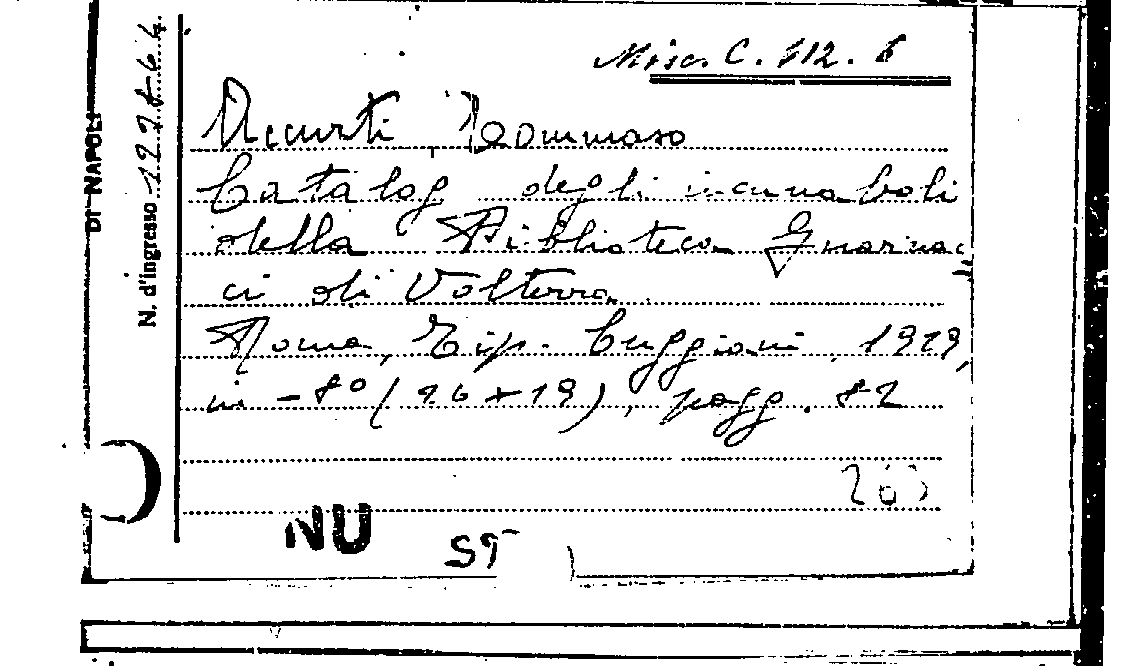 Misc. C. 112. 6
Accurti, Tommaso
Catalog degli incunaboli
della Biblioteca Guarnac=
ci di Volterra
Roma, Tip. Cuggiani, 1929,
in-8° (26 x 19), pagg. 82
263
NU
ST
DI NAPOLI
N. d'ingresso